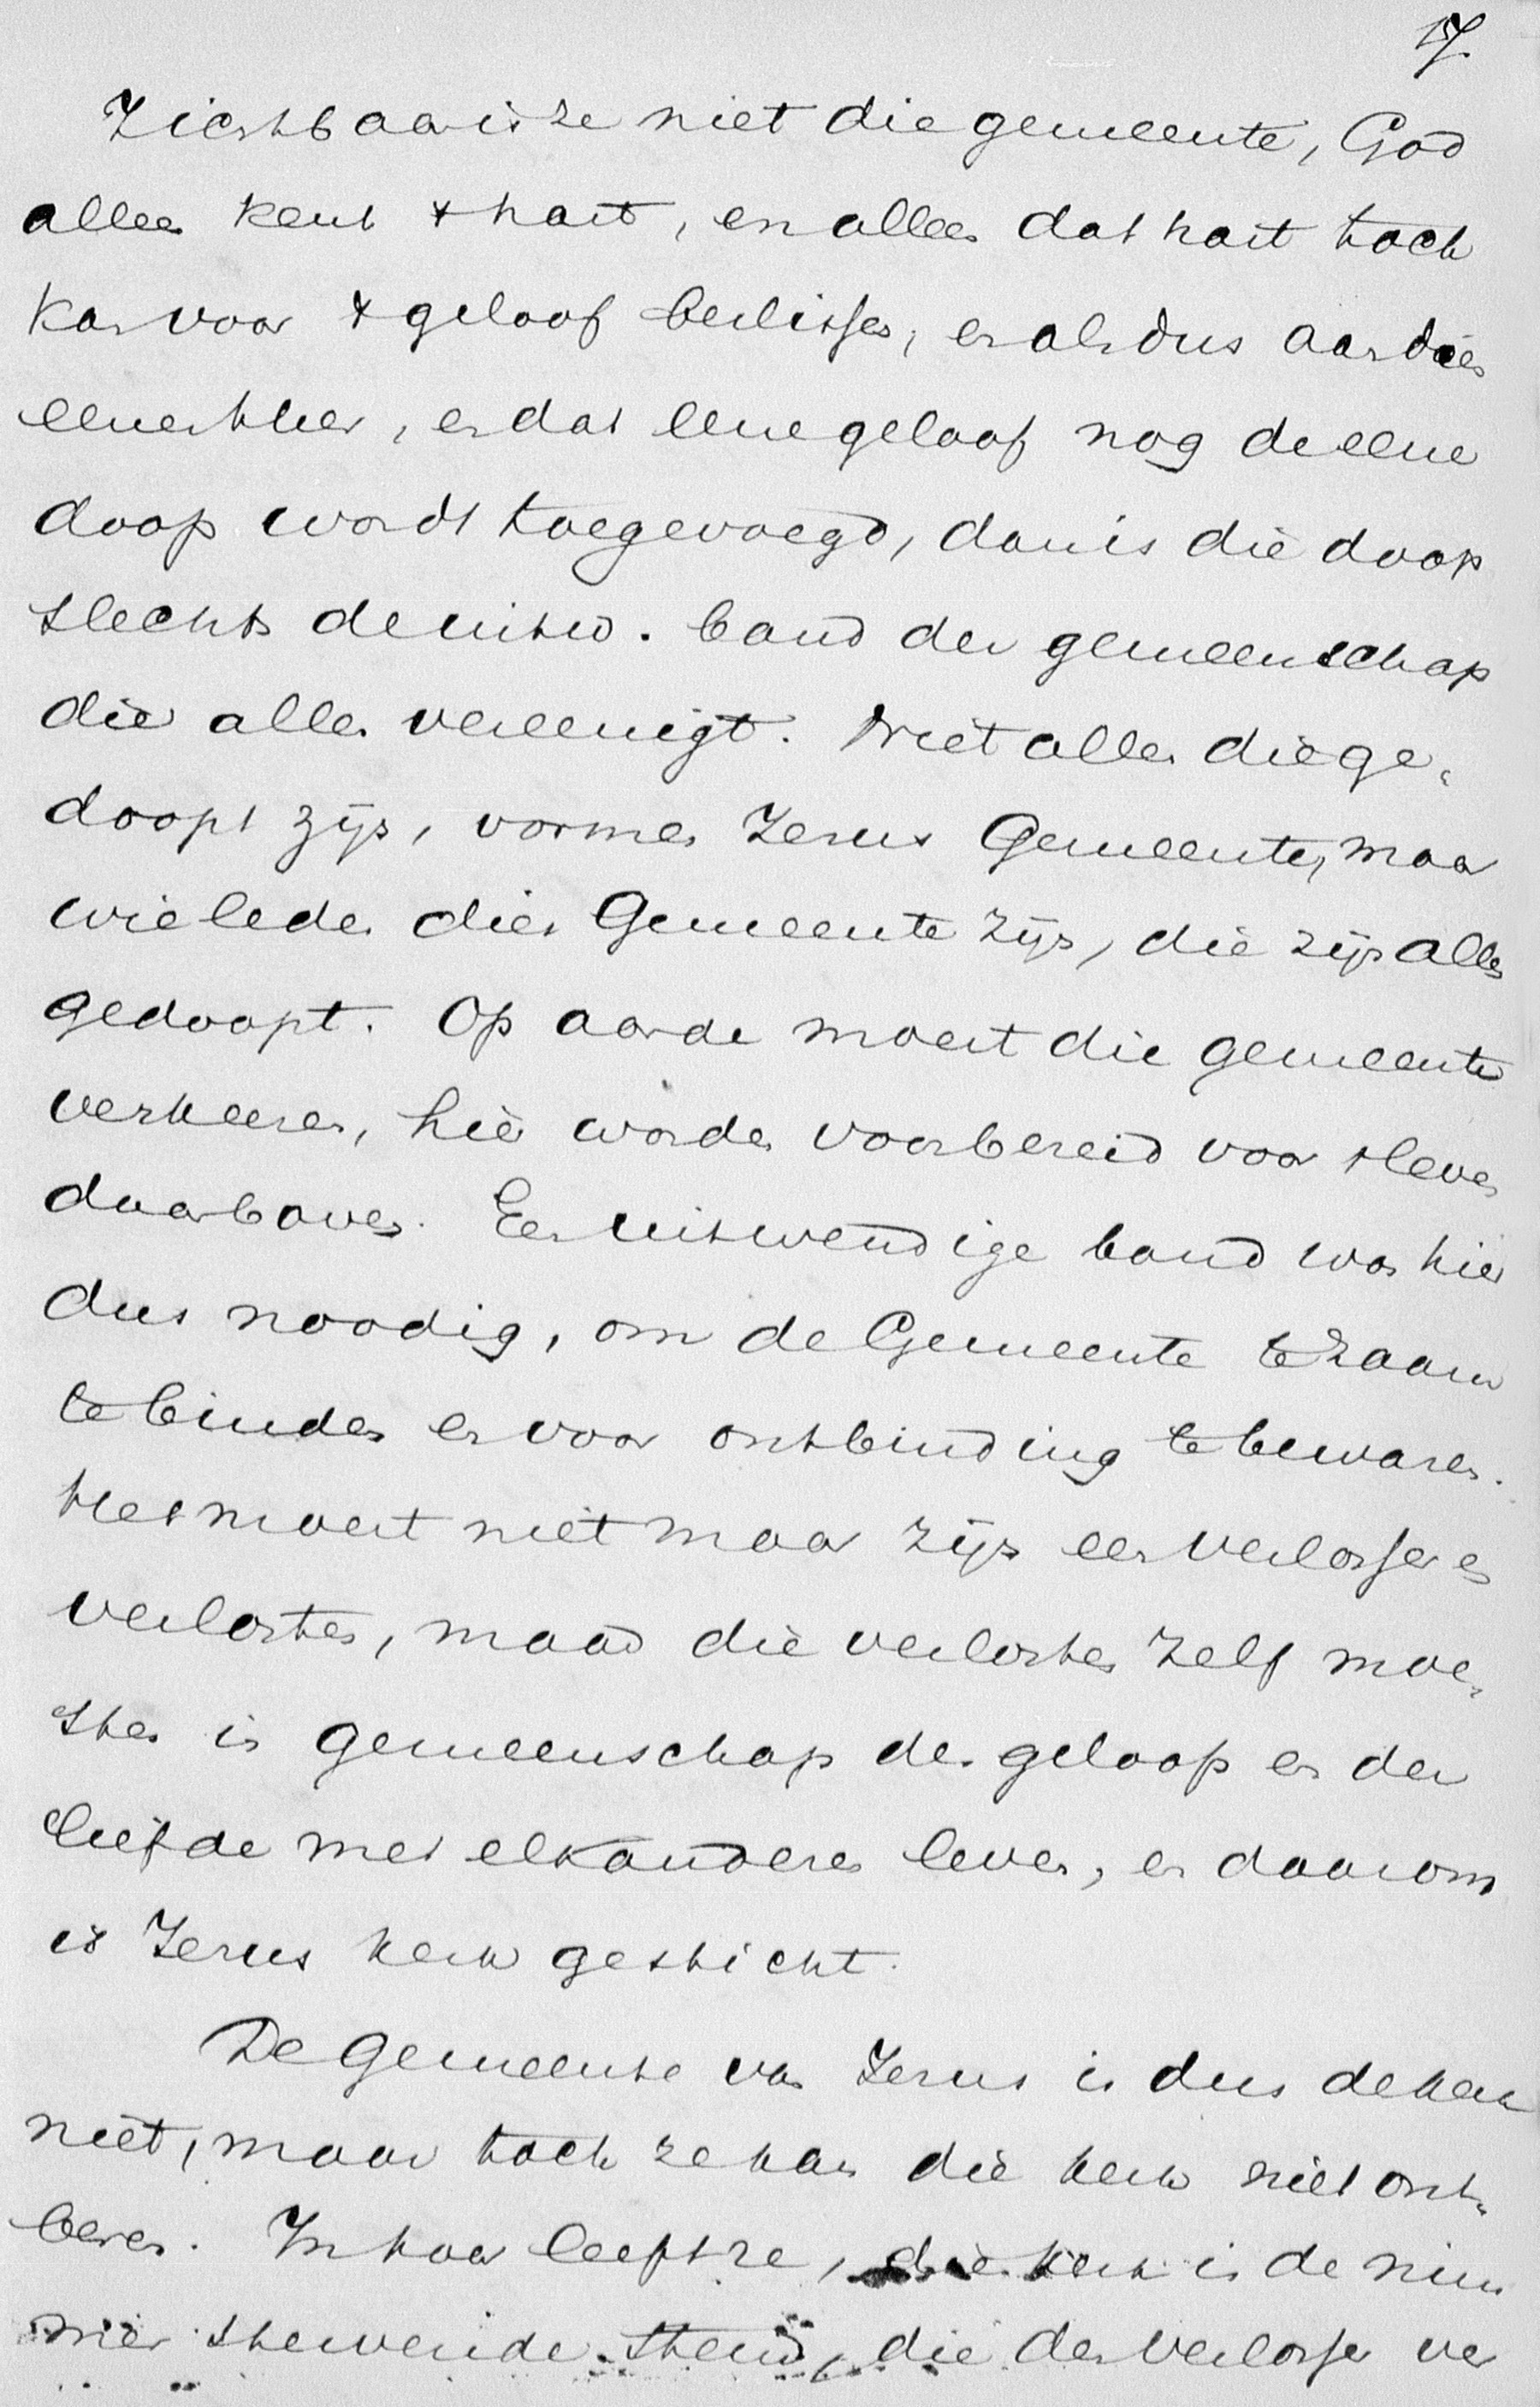 17.
Zichtbaar is ze niet die gemeente, God
alleen kent 't hart, en alleen dat hart toch
kan voor 't geloof beslissen, en als dus aan dien
eenen Heer, en dat eene geloof nog de eene
doop wordt toegevoegd, dan is die doop
slechts de uitw. band der gemeenschap
die allen vereenigt. Niet allen die ge-
doopt zijn, vormen Jezus Gemeente, maar
wie leden dier Gemeente zijn, die zijn allen
gedoopt. Op aarde moest die gemeente
verkeeren, hier worden voorbereid voor 't leven
daarboven. Een uitwendige band was hier
dus noodig, om de Gemeente te zaam
te binden en voor ontbinding te bewaren.
Het moest niet maar zijn een Verlosser en
verlosten, maar die verlosten zelf moe-
sten in gemeenschap des geloofs en der
liefde met elkanderen leven, en daarom
is Jezus kerk gesticht.
De Gemeente van Jezus is dus de kerk
niet, maar toch ze kan die kerk niet ont-
beren. In haar leeft ze, die kerk is de nim
mer stervende stem, die den Verlosser ver